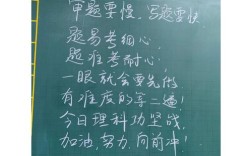 审题要慢，写题要快
题易考细心，
题难考耐心，
一眼就会要先做
有难度的享二遍！
今日理科功坚战，
加油，努力，向前冲！